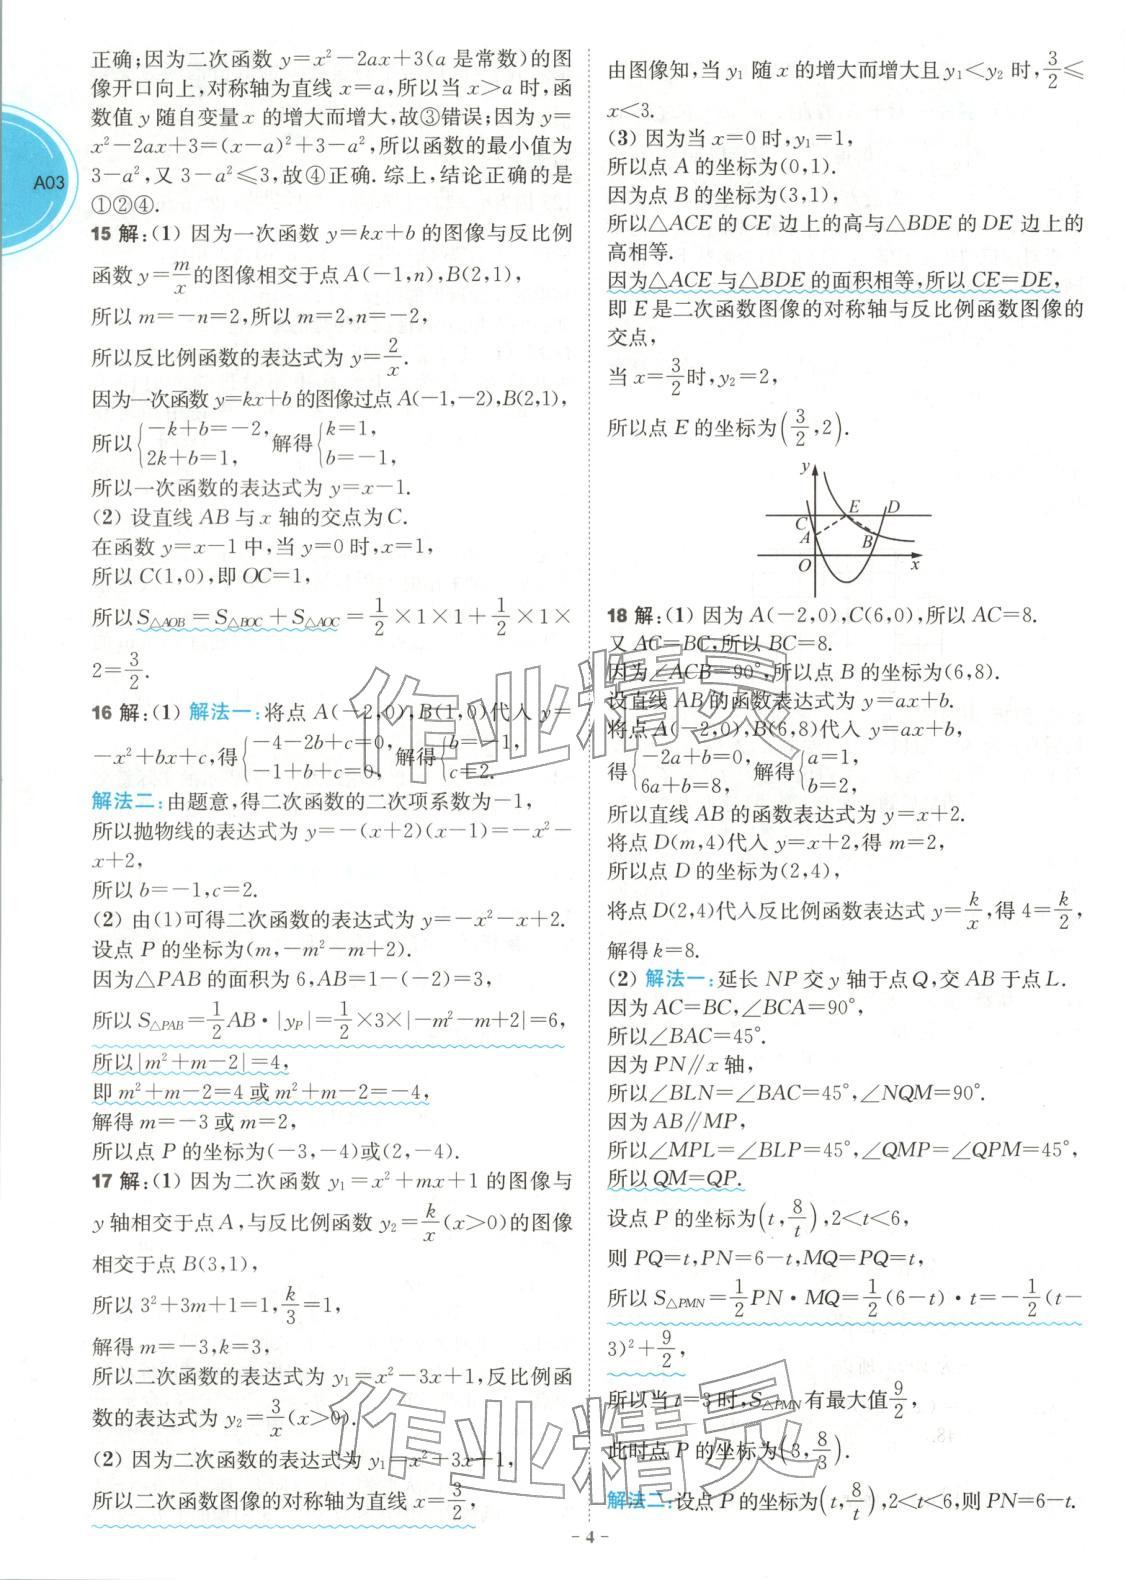 正确;因为二次函数 y=x²-2ax+3(a 是常数)的图
像开口向上,对称轴为直线 x=a,所以当 x>a 时,函
数值 y 随自变量 x 的增大而增大,故③错误;因为 y=
x²-2ax+3=(x-a)²+3-a²,所以函数的最小值为
3-a²,又 3-a²≤3,故④正确.综上,结论正确的是
①②④.
A03
15 解:(1) 因为一次函数 y=kx+b 的图像与反比例
函数 y=m/x 的图像相交于点 A(-1,n),B(2,1),
所以 m=-n=2,所以 m=2,n=-2,
所以反比例函数的表达式为 y=2/x.
因为一次函数 y=kx+b 的图像过点 A(-1,-2),B(2,1),
所以{-k+b=-2, 2k+b=1, 解得{k=1, b=-1,
所以一次函数的表达式为 y=x-1.
(2) 设直线 AB 与 x 轴的交点为 C.
在函数 y=x-1 中,当 y=0 时,x=1,
所以 C(1,0),即 OC=1,
所以 S△AOB=S△BOC+S△AOC=1/2×1×1+1/2×1×
2=3/2.
16 解:(1) 解法一:将点 A(-2,0),B(1,0)代入 y=
-x²+bx+c,得{-4-2b+c=0, -1+b+c=0, 解得{b=-1, c=2.
解法二:由题意,得二次函数的二次项系数为-1,
所以抛物线的表达式为 y=-(x+2)(x-1)=-x²-
x+2,
所以 b=-1,c=2.
(2) 由(1)可得二次函数的表达式为 y=-x²-x+2.
设点 P 的坐标为(m,-m²-m+2).
因为△PAB 的面积为 6,AB=1-(-2)=3,
所以 S△PAB=1/2AB·|yP|=1/2×3×|-m²-m+2|=6,
所以|m²+m-2|=4,
即 m²+m-2=4 或 m²+m-2=-4,
解得 m=-3 或 m=2,
所以点 P 的坐标为(-3,-4)或(2,-4).
17 解:(1) 因为二次函数 y₁=x²+mx+1 的图像与
y 轴相交于点 A,与反比例函数 y₂=k/x(x>0)的图像
相交于点 B(3,1),
所以 3²+3m+1=1,k/3=1,
解得 m=-3,k=3,
所以二次函数的表达式为 y₁=x²-3x+1,反比例函
数的表达式为 y₂=3/x(x>0).
(2) 因为二次函数的表达式为 y₁=x²-3x+1,
所以二次函数图像的对称轴为直线 x=3/2,
由图像知,当 y₁ 随 x 的增大而增大且 y₁<y₂ 时,3/2≤
x<3.
(3) 因为当 x=0 时,y₁=1,
所以点 A 的坐标为(0,1).
因为点 B 的坐标为(3,1),
所以△ACE 的 CE 边上的高与△BDE 的 DE 边上的
高相等.
因为△ACE 与△BDE 的面积相等,所以 CE=DE,
即 E 是二次函数图像的对称轴与反比例函数图像的
交点,
当 x=3/2时,y₂=2,
所以点 E 的坐标为(3/2,2).
y
C
E
D
A
B
O
x
18 解:(1) 因为 A(-2,0),C(6,0),所以 AC=8.
又 AC=BC,所以 BC=8.
因为∠ACB=90°,所以点 B 的坐标为(6,8).
设直线 AB 的函数表达式为 y=ax+b.
将点 A(-2,0),B(6,8)代入 y=ax+b,
得{-2a+b=0, 6a+b=8, 解得{a=1, b=2,
所以直线 AB 的函数表达式为 y=x+2.
将点 D(m,4)代入 y=x+2,得 m=2,
所以点 D 的坐标为(2,4),
将点 D(2,4)代入反比例函数表达式 y=k/x,得 4=k/2,
解得 k=8.
(2) 解法一:延长 NP 交 y 轴于点 Q,交 AB 于点 L.
因为 AC=BC,∠BCA=90°,
所以∠BAC=45°.
因为 PN∥x 轴,
所以∠BLN=∠BAC=45°,∠NQM=90°.
因为 AB∥MP,
所以∠MPL=∠BLP=45°,∠QMP=∠QPM=45°,
所以 QM=QP.
设点 P 的坐标为(t,8/t),2<t<6,
则 PQ=t,PN=6-t,MQ=PQ=t,
所以 S△PMN=1/2PN·MQ=1/2(6-t)·t=-1/2(t-
3)²+9/2,
所以当 t=3 时,S△PMN 有最大值9/2,
此时点 P 的坐标为(3,8/3).
解法二:设点 P 的坐标为(t,8/t),2<t<6,则 PN=6-t.
- 4 -
作业精灵
作业精灵